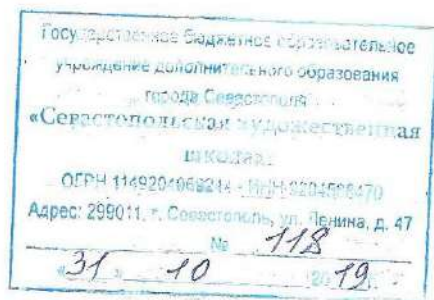 Государственное бюджетное образовательное
учреждение дополнительного образования
города Севастополя
«Севастопольская художественная
школа»
ОГРН 1149204069244 - ИНН
Адрес: 299011, г. Севастополь, ул. Ленина, д. 47
№ 118
«31» 10 2019